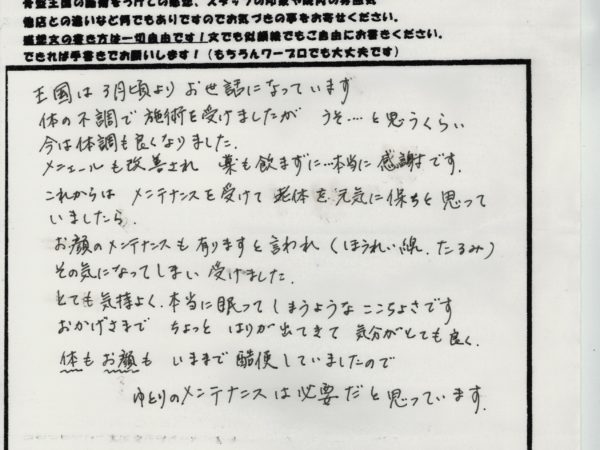 骨盤王国の施術をうけての感想、スタッフの印象や院内の雰囲気
他店との違いなど何でもありですのでお気づきの事をお寄せください。
感想文の書き方は一切自由です!文でも似顔絵でもご自由にお書きください。
できれば手書きでお願いします!(もちろんワープロでも大丈夫です)
王国は3月頃より お世話になっています
体の不調で 施術を受けましたが うそ‥‥と思うくらい
今は体調も良くなりました.
メニエールも改善され 薬も飲まずに…本当に 感謝です.
これからは メンテナンスを受けて 老体を元気に保ちと思って
いましたら.
お顔のメンテナンスも有りますと言われ(ほうれい線.たるみ)
その気になってしまい 受けました.
とても気持よく.本当に眠ってしまうような ここちよさです
おかげさまで ちょっと はりが出てきて 気分がとても良く.
体もお顔も いままで 酷使していましたので
ゆとりのメンテナンスは必要だと思っています.